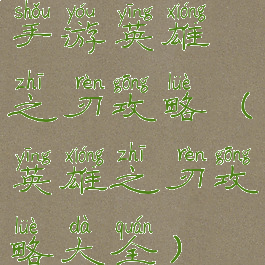 shǒu yóu yīng xióng
手游英雄
zhī rèn gōng lüè
之刃攻略（
yīng xióng zhī rèn gōng
英雄之刃攻
lüè dà quán
略大全）